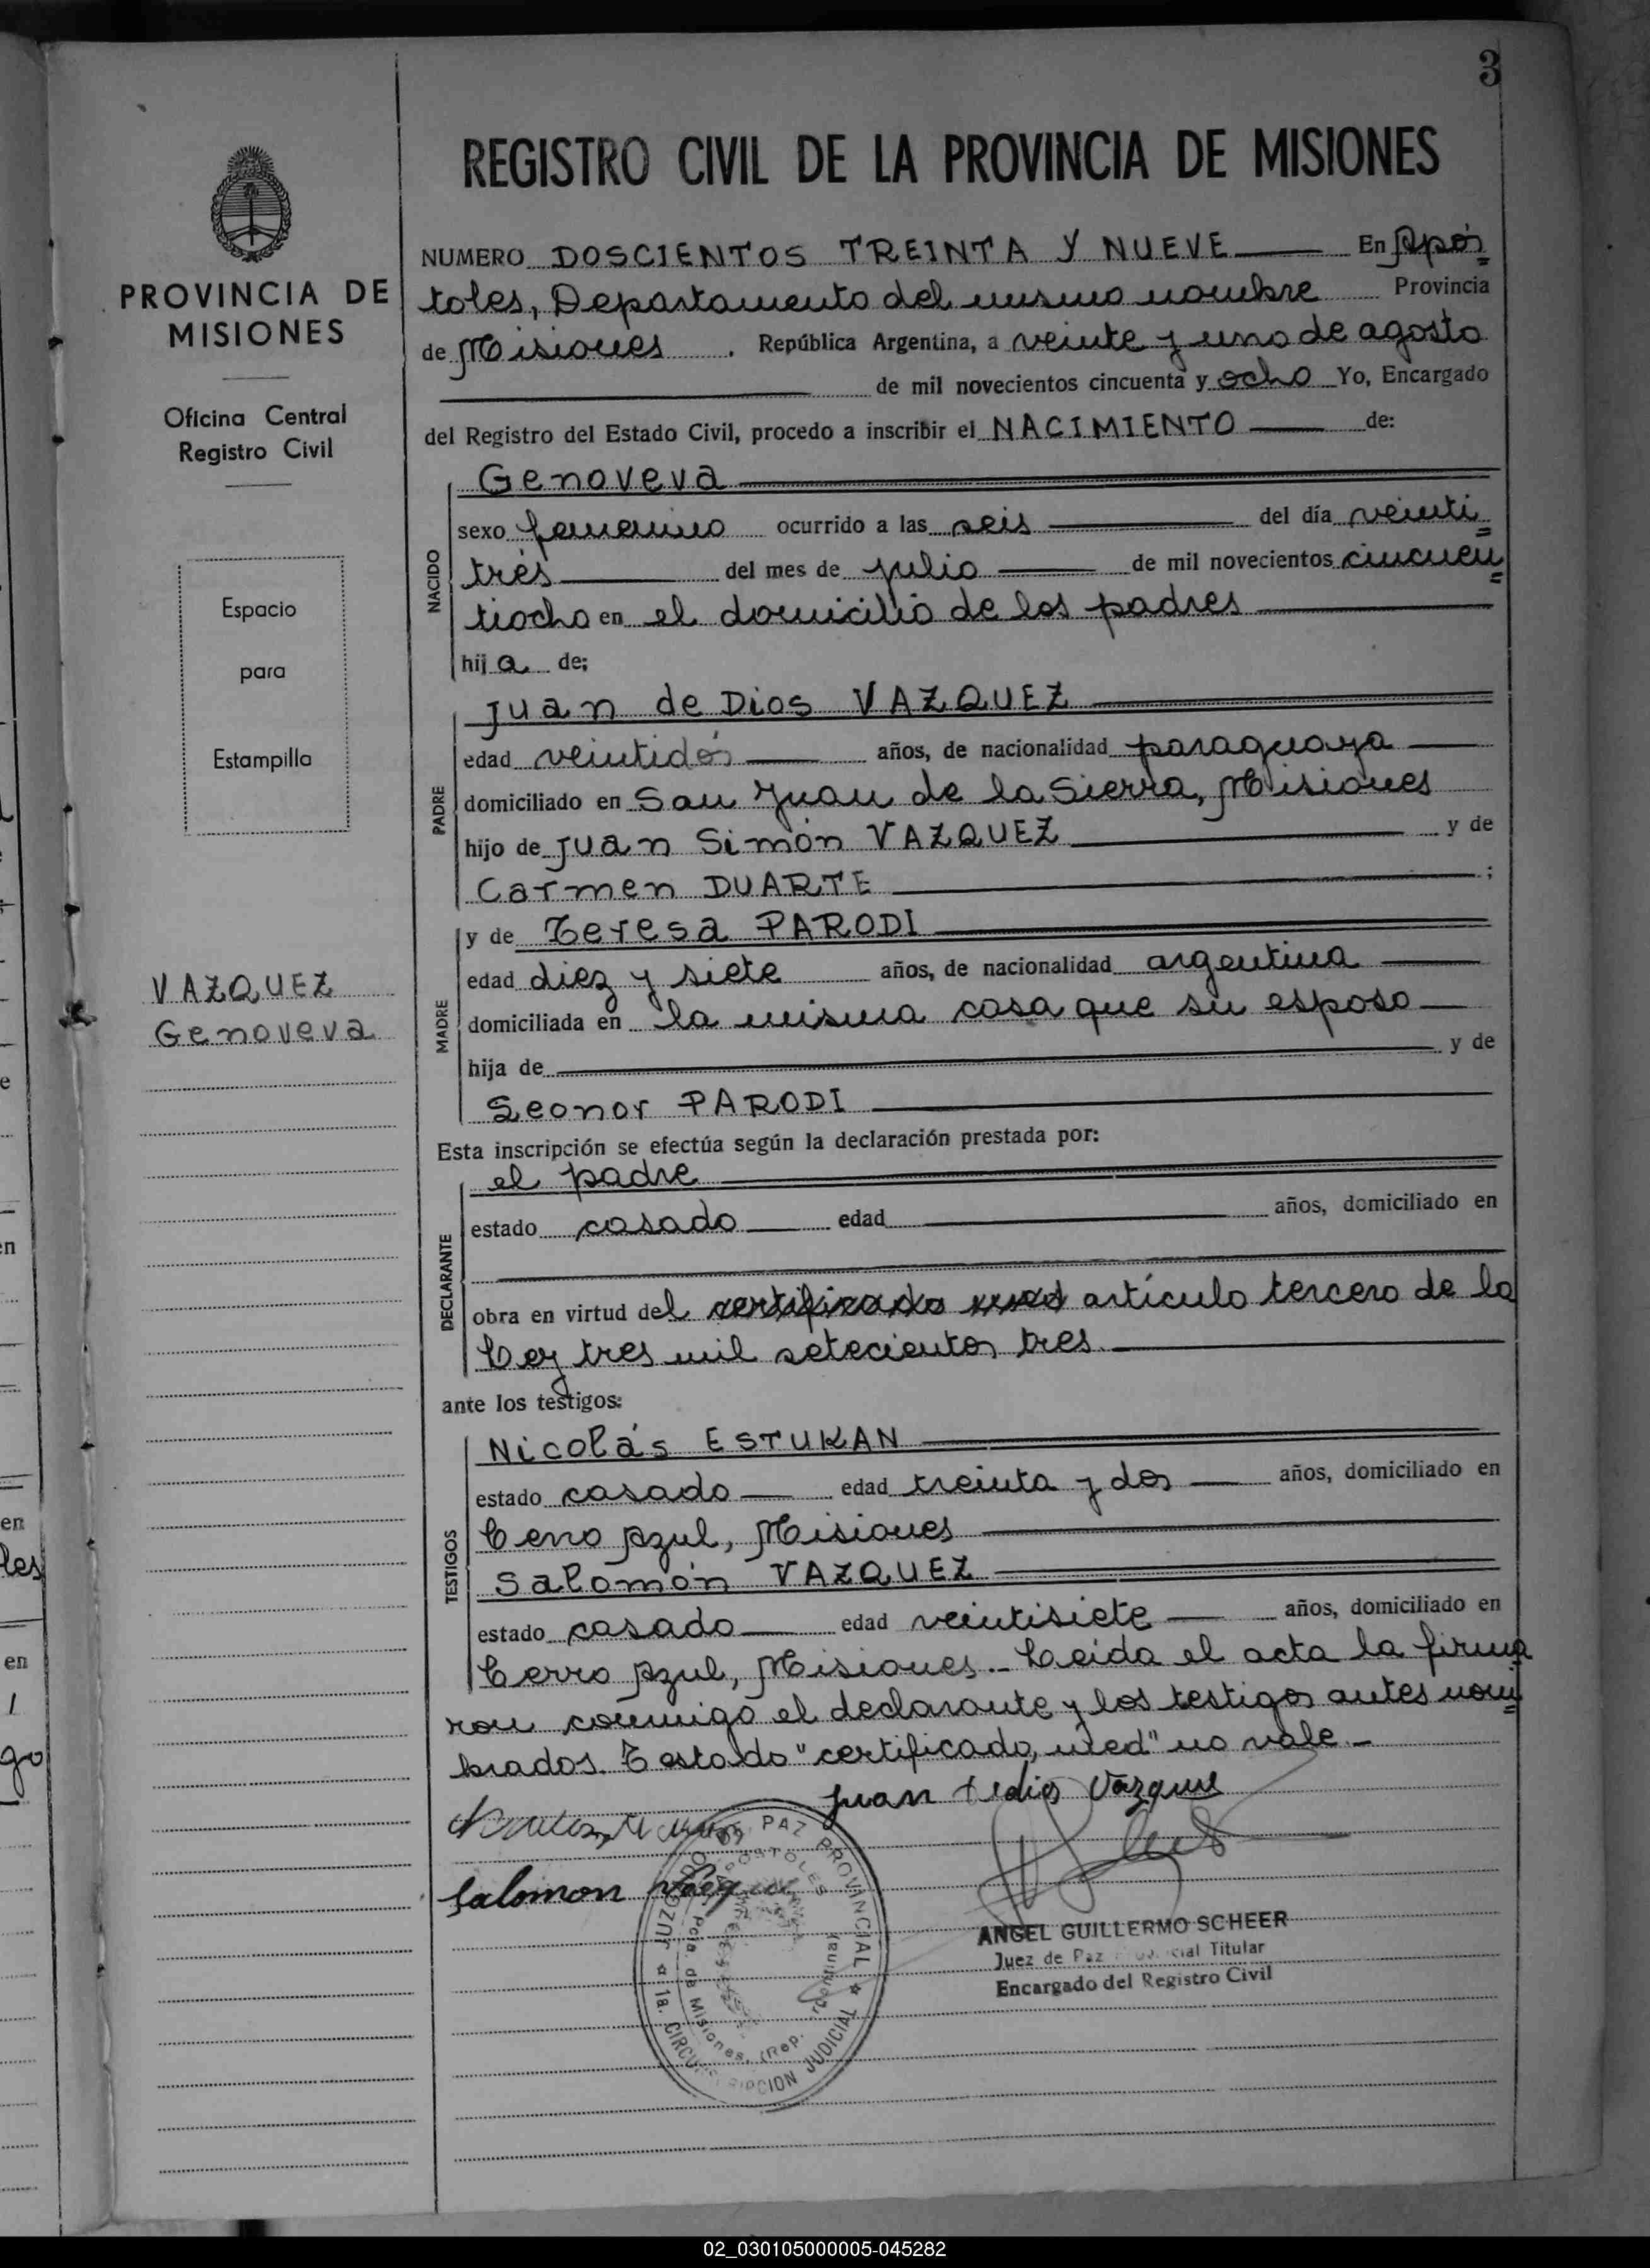 3
REGISTRO CIVIL DE LA PROVINCIA DE MISIONES
PROVINCIA DE
MISIONES
Oficina Central
Registro Civil
Espacio
para
Estampilla
VAZQUEZ
Genoveva
NUMERO DOSCIENTOS TREINTA Y NUEVE En Após
toles, Departamento del mismo nombre Provincia
de Misiones . República Argentina, a veinte y uno de agosto
de mil novecientos cincuenta y ocho Yo, Encargado
del Registro del Estado Civil, procedo a inscribir el NACIMIENTO de:
NACIDO
Genoveva
sexo femenino ocurrido a las seis del día veinti=
trés del mes de julio de mil novecientos cincuen=
tiocho en el domicilio de los padres
hija de:
PADRE
Juan de Dios VAZQUEZ
edad veintidós años, de nacionalidad paraguaya
domiciliado en San Juan de la Sierra, Misiones
hijo de Juan Simón VAZQUEZ y de
Carmen DUARTE ;
MADRE
y de Teresa PARODI
edad diez y siete años, de nacionalidad argentina
domiciliada en la misma casa que su esposo
hija de y de
Leonor PARODI
Esta inscripción se efectúa según la declaración prestada por:
DECLARANTE
el padre
estado casado edad años, domiciliado en
obra en virtud del certificado artículo tercero de la
Ley tres mil setecientos tres.
ante los testigos:
TESTIGOS
Nicolás ESTUKAN
estado casado edad treinta y dos años, domiciliado en
Cerro Azul, Misiones
Salomón VAZQUEZ
estado casado edad veintisiete años, domiciliado en
Cerro Azul, Misiones.- Leída el acta la firma
ron conmigo el declarante y los testigos antes nom=
brados. Testado "certificado, med" no vale.-
Juan Dedios Vazquez
Salomon
JUZGADO DE PAZ PROVINCIAL ☆ 1a. CIRCUNSCRIPCION JUDICIAL ☆
APOSTOLES
Pcia. de Misiones, (Rep.
ANGEL GUILLERMO SCHEER
Juez de Paz Titular
Encargado del Registro Civil
en
les
en
go
02_030105000005-045282